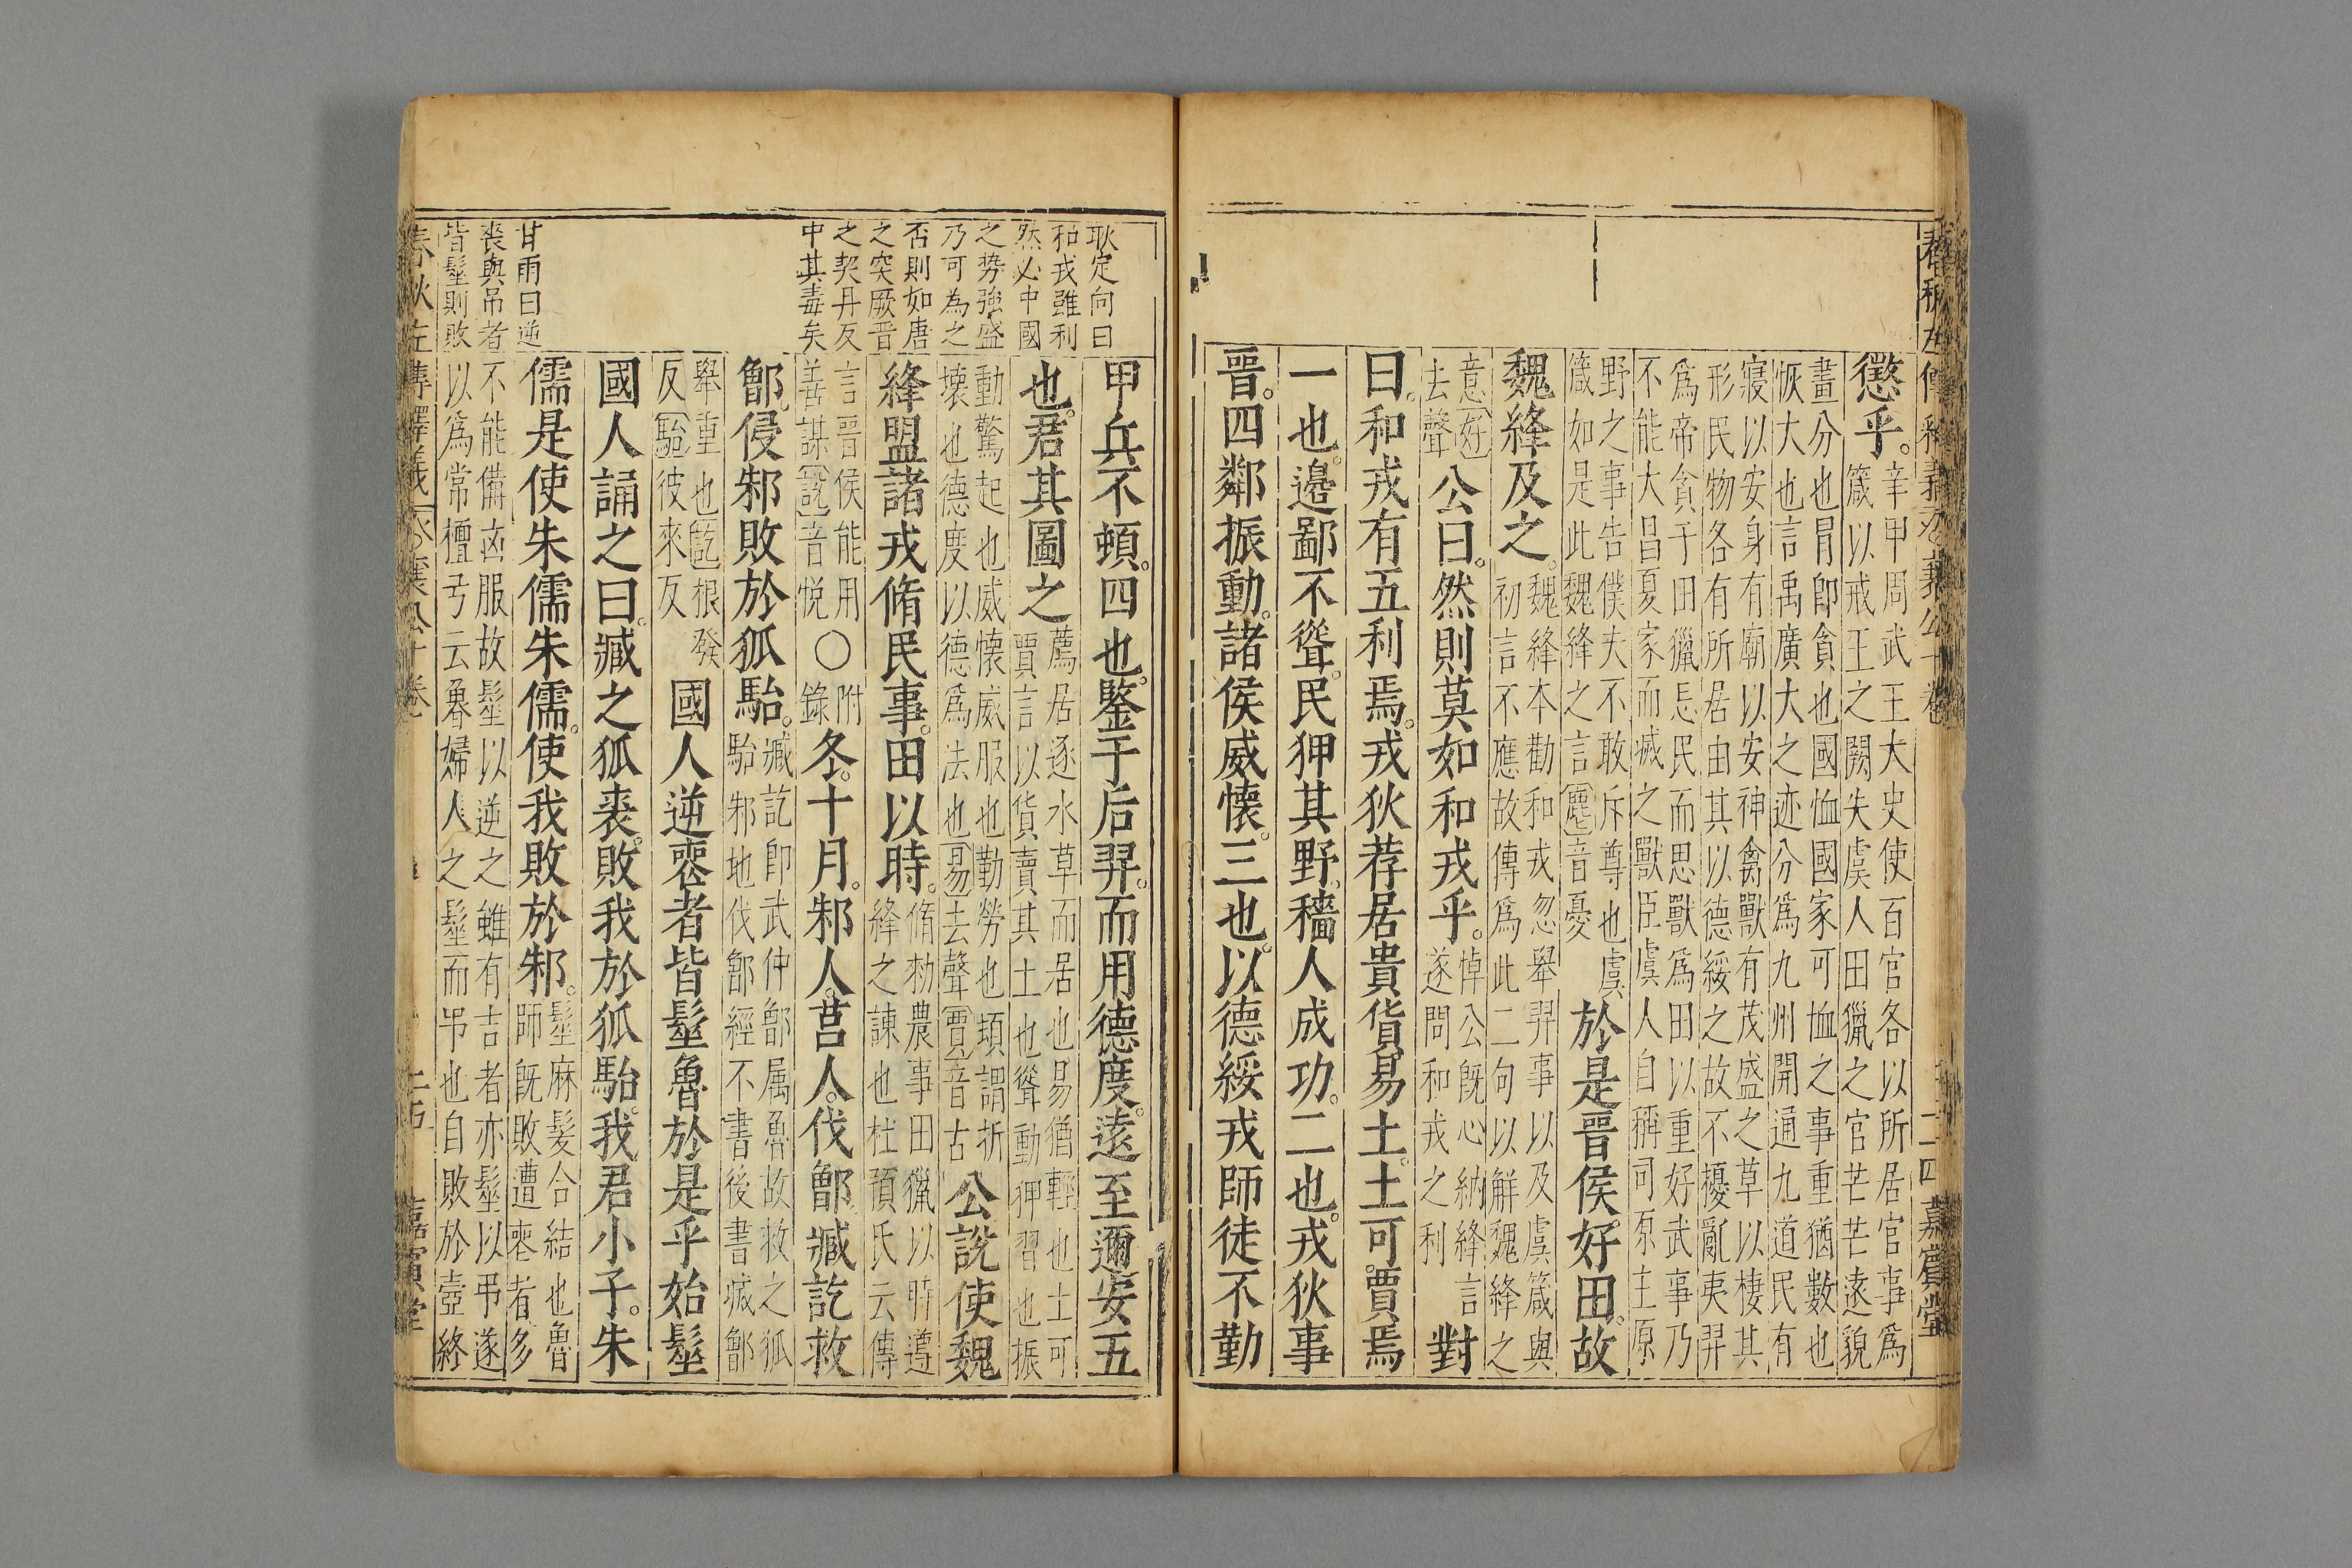 春秋左傳釋義 襄公十卷 二十四 嘉賓堂
懲乎。
辛甲周武王大史使百官各以所居官事爲
箴以戒王之闕失虞人田獵之官芒芒遠貌
畫分也冒卽貪也國恤國家可恤之事重猶數也
恢大也言禹廣大之迹分爲九州開通九道民有
寢以安身有廟以安神禽獸有茂盛之草以棲其
形民物各有所居由其以德綏之故不擾亂夷羿
爲帝貪于田獵忘民而思獸爲田以重好武事乃
不能大昌夏家而滅之獸臣虞人自稱司原主原
野之事告僕夫不敢斥尊也虞
箴如是此魏絳之言麀音憂
於是晉侯。好田。故
魏絳及之。
魏絳本勸和戎忽舉羿事以及虞箴與
初言不應故傳爲此二句以解魏絳之
意好
去聲
公曰。然則莫如和戎乎。
悼公旣心納絳言
遂問和戎之利
對
曰。和戎有五利焉。戎狄荐居貴貨易土。土可賈焉
一也。邊鄙不聳。民狎其野。穡人成功。二也。戎狄事
晉。四鄰振動。諸侯威懷。三也。以德綏戎師徒不勤
耿定向曰
和戎雖利
然必中國
之势強盛
乃可為之
否則如唐
之突厥晋
之契丹反
中其毒矣
甲兵不頓。四也。鑒于后羿。而用德度。遠至邇安五
也。君其圖之
薦居逐水草而居也易猶輕也土可
賈言以貨賣其土也聳動狎習也振
動驚起也威懷威服也勤勞也頓謂折
壞也德度以德爲法也易去聲賈音古
公說使魏
絳盟諸戎脩民事。田以時。
脩勑農事田獵以時遵
絳之諫也杜預氏云傳
言晉侯能用
善謀說音悦
○
附
錄
冬。十月。邾人。莒人。伐鄫臧訖救
鄫。侵邾敗於狐駘。
臧訖卽武仲鄫属魯故救之狐
駘邾地伐鄫經不書後書滅鄫
舉重也訖根發
反駘彼來反
國人逆喪者皆髽魯於是乎始髽
國人誦之曰。臧之狐裘。敗我於狐駘。我君小子。朱
儒是使朱儒朱儒。使我敗於邾。
髽麻髮合結也魯
師旣敗遭喪者多
不能備凶服故髽以逆之雖有吉者亦髽以弔遂
以爲常檀弓云魯婦人之髽而弔也自敗於壺終
甘雨曰逆
喪與吊者
皆髽則敗
春秋左傳釋義 襄公十卷 二十五 嘉賓堂